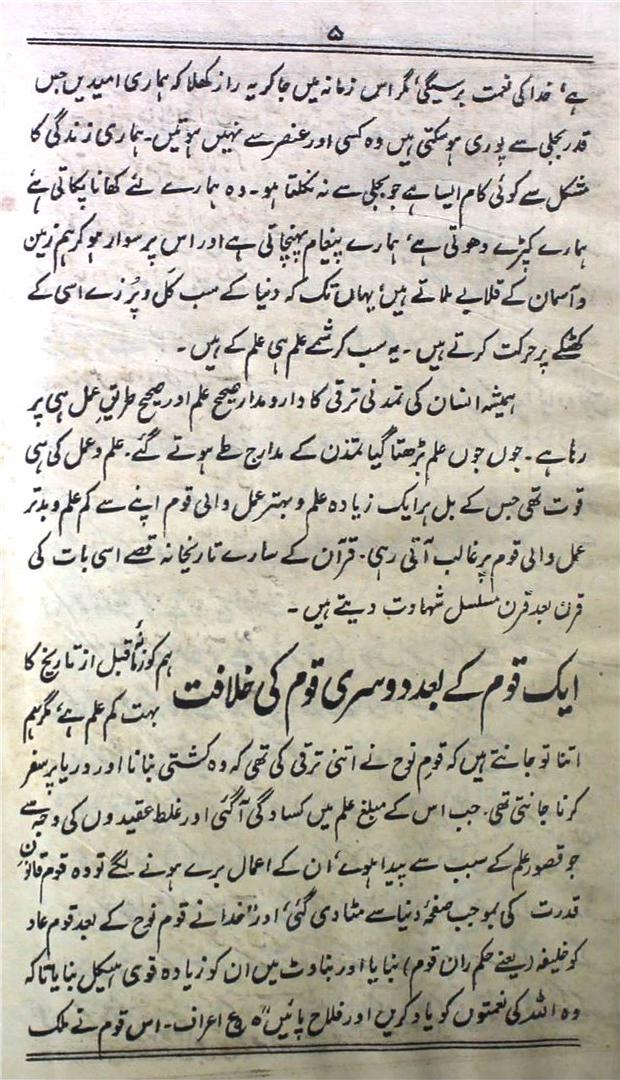 ۵
ہے‘ خدا کی نعمت برسیگی‘ مگر اس زمانہ میں جاکر یہ راز کھلا کہ ہماری امیدیں جس
قدر بجلی سے پوری ہوسکتی ہیں وہ کسی اور عنصر سے نہیں ہوتیں۔ ہماری زندگی کا
مشکل سے کوئی کام ایسا ہے جو بجلی سے نہ نکلتا ہو۔ وہ ہمارے لئے کھانا پکاتی ہے
ہمارے کپڑے دھوتی ہے‘ ہمارے پیغام پہنچاتی ہے اور اس پر سوار ہوکر ہم زمین
و آسمان کے قلابے ملاتے ہیں‘ یہاں تک کہ دنیا کے سب کل و پرزے اسی کے
کھٹکے پر حرکت کرتے ہیں۔ یہ سب کرشمے علم ہی علم کے ہیں۔
ہمیشہ انسان کی تمدنی ترقی کا دارومدار صحیح علم اور صحیح طریقِ عمل ہی پر
رہا ہے۔ جوں جوں علم بڑھتا گیا تمدن کے مدارج طے ہوتے گئے۔ علم و عمل کی ہی
قوت تھی جس کے بل ہر ایک زیادہ علم و بہتر عمل والی قوم اپنے سے کم علم و بدتر
عمل والی قوم پر غالب آتی رہی۔ قرآن کے سارے تاریخانہ قصے اسی بات کی
قرن بعد قرن مسلسل شہادت دیتے ہیں۔
ایک قوم کے بعد دوسری قوم کی خلافت
ہم کو زمانۂ قبل از تاریخ کا
بہت کم علم ہے‘ مگر ہم
اتنا تو جانتے ہیں کہ قوم نوح نے اتنی ترقی کی تھی کہ وہ کشتی بنانا اور دریا پر سفر
کرنا جانتی تھی۔ جب اس کے مبلغ علم میں کسادگی آگئی اور غلط عقیدوں کی وجہ سے
جو قصور علم کے سبب سے پیدا ہوے‘ ان کے اعمال برے ہونے لگے تو وہ قوم قانونِ
قدرت کی بموجب صفحۂ دنیا سے مٹا دی گئی‘ اور ”خدا نے قوم نوح کے بعد قوم عاد
کو خلیفہ (یعنے حکم ران قوم) بنایا اور بناوٹ میں ان کو زیادہ قوی ہیکل بنایا تاکہ
وہ اللہ کی نعمتوں کو یاد کریں اور فلاح پائیں“ ع اعراف۔ اس قوم نے ملک